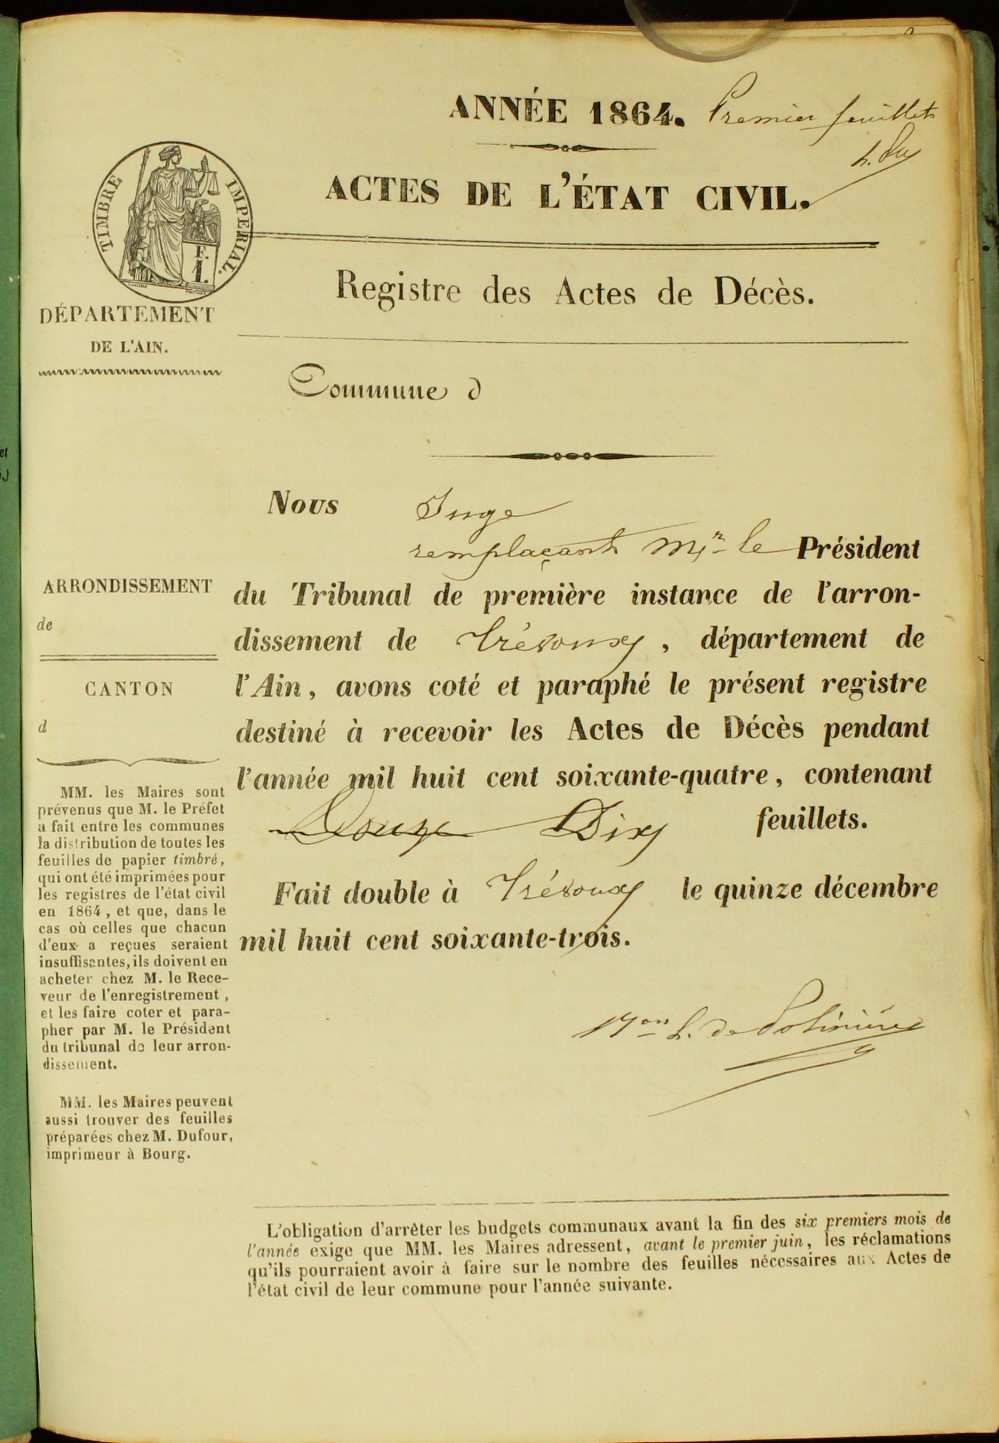 ANNÉE 1864. Premier feuillet
ACTES DE L'ÉTAT CIVIL.
TIMBRE IMPÉRIAL.
F.
1.
DÉPARTEMENT
DE L'AIN.
Registre des Actes de Décès.
Commune d
Nous Juge
remplaçant Mr le Président
du Tribunal de première instance de l'arron-
dissement de Trévoux, département de
l'Ain, avons coté et paraphé le présent registre
destiné à recevoir les Actes de Décès pendant
l'année mil huit cent soixante-quatre, contenant
Douze Dix feuillets.
Fait double à Trévoux le quinze décembre
mil huit cent soixante-trois.
ARRONDISSEMENT
de
CANTON
d
MM. les Maires sont
prévenus que M. le Préfet
a fait entre les communes
la distribution de toutes les
feuilles de papier timbré,
qui ont été imprimées pour
les registres de l'état civil
en 1864, et que, dans le
cas où celles que chacun
d'eux a reçues seraient
insuffisantes, ils doivent en
acheter chez M. le Rece-
veur de l'enregistrement,
et les faire coter et para-
pher par M. le Président
du tribunal de leur arron-
dissement.
MM. les Maires peuvent
aussi trouver des feuilles
préparées chez M. Dufour,
imprimeur à Bourg.
L'obligation d'arrêter les budgets communaux avant la fin des six premiers mois de
l'année exige que MM. les Maires adressent, avant le premier juin, les réclamations
qu'ils pourraient avoir à faire sur le nombre des feuilles nécessaires aux Actes de
l'état civil de leur commune pour l'année suivante.